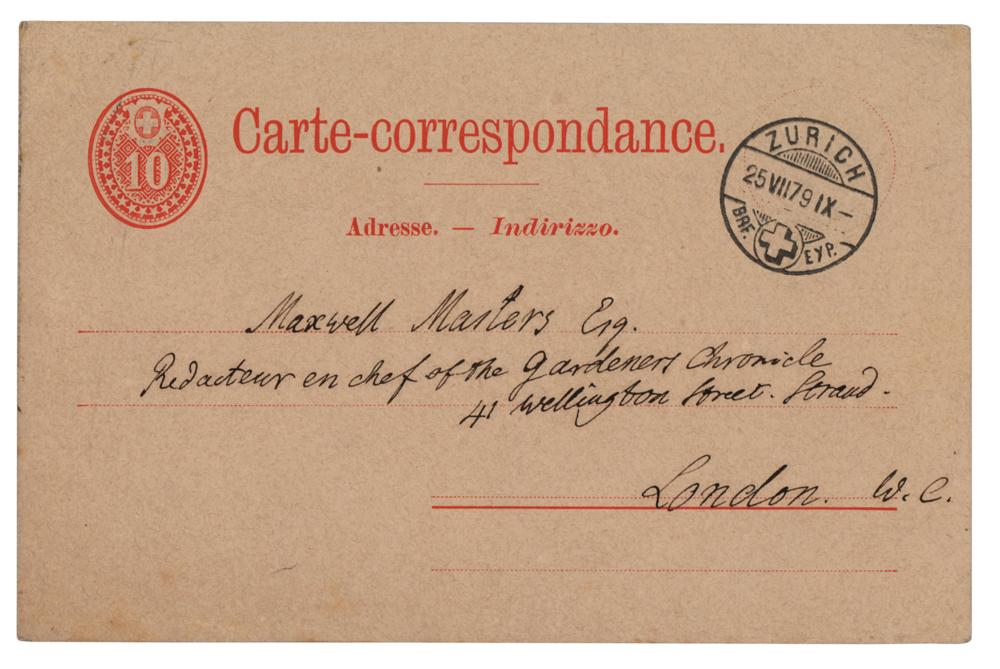 10
Carte-correspondance.
Adresse. — Indirizzo.
ZURICH
25 VII 79 IX –
BRF. EXP.
Maxwell Masters Esq.
Redacteur en chef of the Gardeners Chronicle
41 Wellington Street. Strand.
London. W. C.